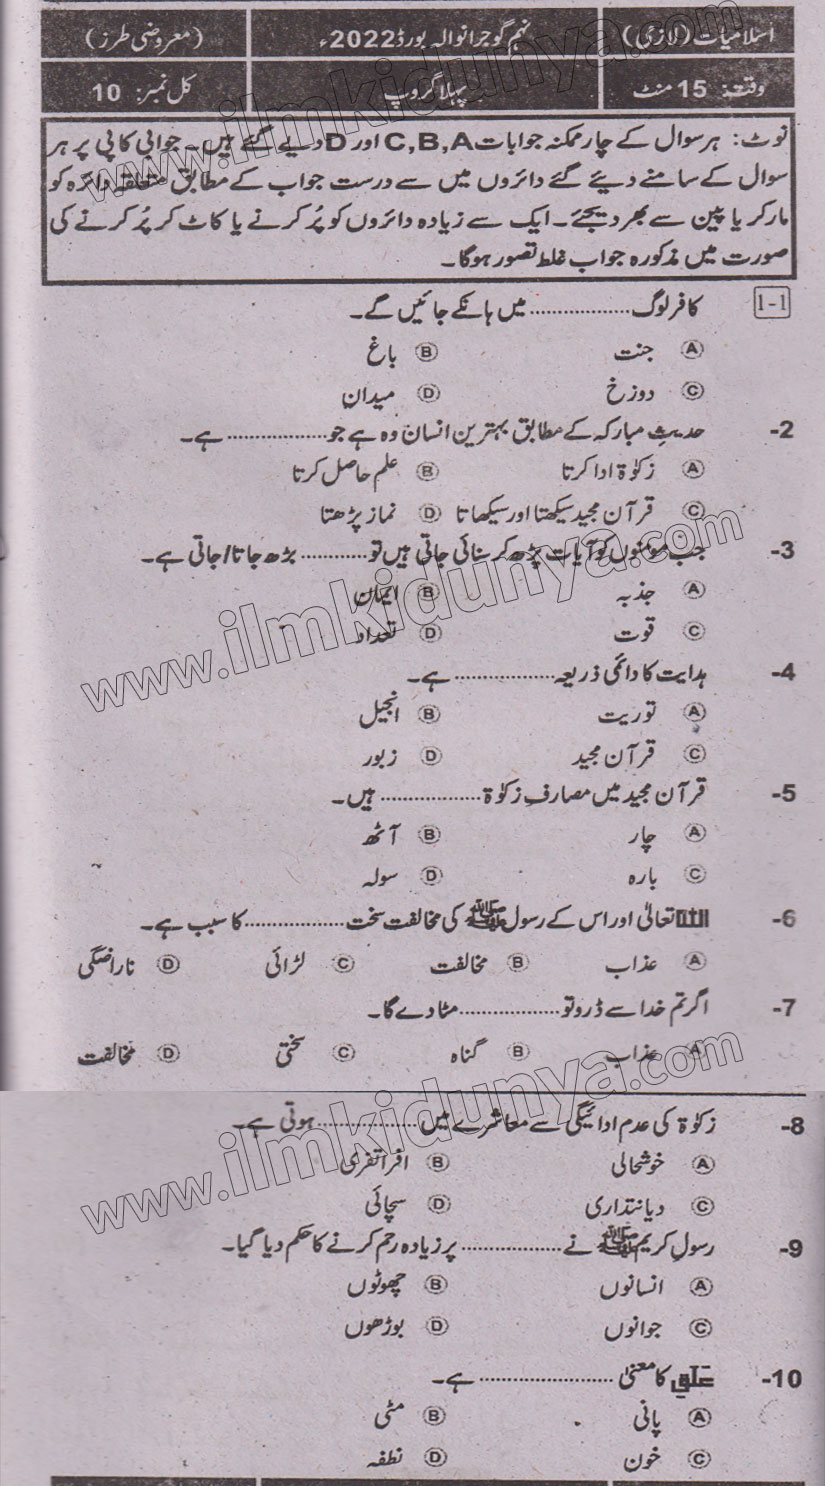 اسلامیات (لازمی) نہم گوجرانوالہ بورڈ 2022ء (معروضی طرز)
وقت: 15 منٹ پہلا گروپ کل نمبر: 10
نوٹ: ہر سوال کے چار ممکنہ جوابات C,B,A اور D دیے گئے ہیں۔ جوابی کاپی پر ہر
سوال کے سامنے دیئے گئے دائروں میں سے درست جواب کے مطابق متعلقہ دائرہ کو
مارکر یا پین سے بھر دیجئے۔ ایک سے زیادہ دائروں کو پُر کرنے یا کاٹ کر پُر کرنے کی
صورت میں مذکورہ جواب غلط تصور ہوگا۔
1-1 کافر لوگ .................. میں ہانکے جائیں گے۔
A جنت B باغ
C دوزخ D میدان
2- حدیثِ مبارکہ کے مطابق بہترین انسان وہ ہے جو .................. ہے۔
A زکوٰۃ ادا کرتا B علم حاصل کرتا
C قرآن مجید سیکھتا اور سیکھاتا D نماز پڑھتا
3- جب مومنوں کو آیات پڑھ کر سنائی جاتی ہیں تو ............ بڑھ جاتا/جاتی ہے۔
A جذبہ B ایمان
C قوت D تعداد
4- ہدایت کا دائمی ذریعہ .................. ہے۔
A توریت B انجیل
C قرآن مجید D زبور
5- قرآن مجید میں مصارفِ زکوٰۃ .................. ہیں۔
A چار B آٹھ
C بارہ D سولہ
6- اللہ تعالیٰ اور اس کے رسول ﷺ کی مخالفت سخت .................. کا سبب ہے۔
A عذاب B مخالفت C لڑائی D ناراضگی
7- اگر تم خدا سے ڈرو تو .................. مٹا دے گا۔
A عذاب B گناہ C سختی D مخالفت
8- زکوٰۃ کی عدم ادائیگی سے معاشرے میں .................. ہوتی ہے۔
A خوشحالی B افراتفری
C دیانتداری D سچائی
9- رسولِ کریم ﷺ نے .................. پر زیادہ رحم کرنے کا حکم دیا گیا۔
A انسانوں B چھوٹوں
C جوانوں D بوڑھوں
10- عَلَقٍ کا معنیٰ ........................ ہے۔
A پانی B مٹی
C خون D نطفہ
www.ilmkidunya.com
www.ilmkidunya.com
www.ilmkidunya.com